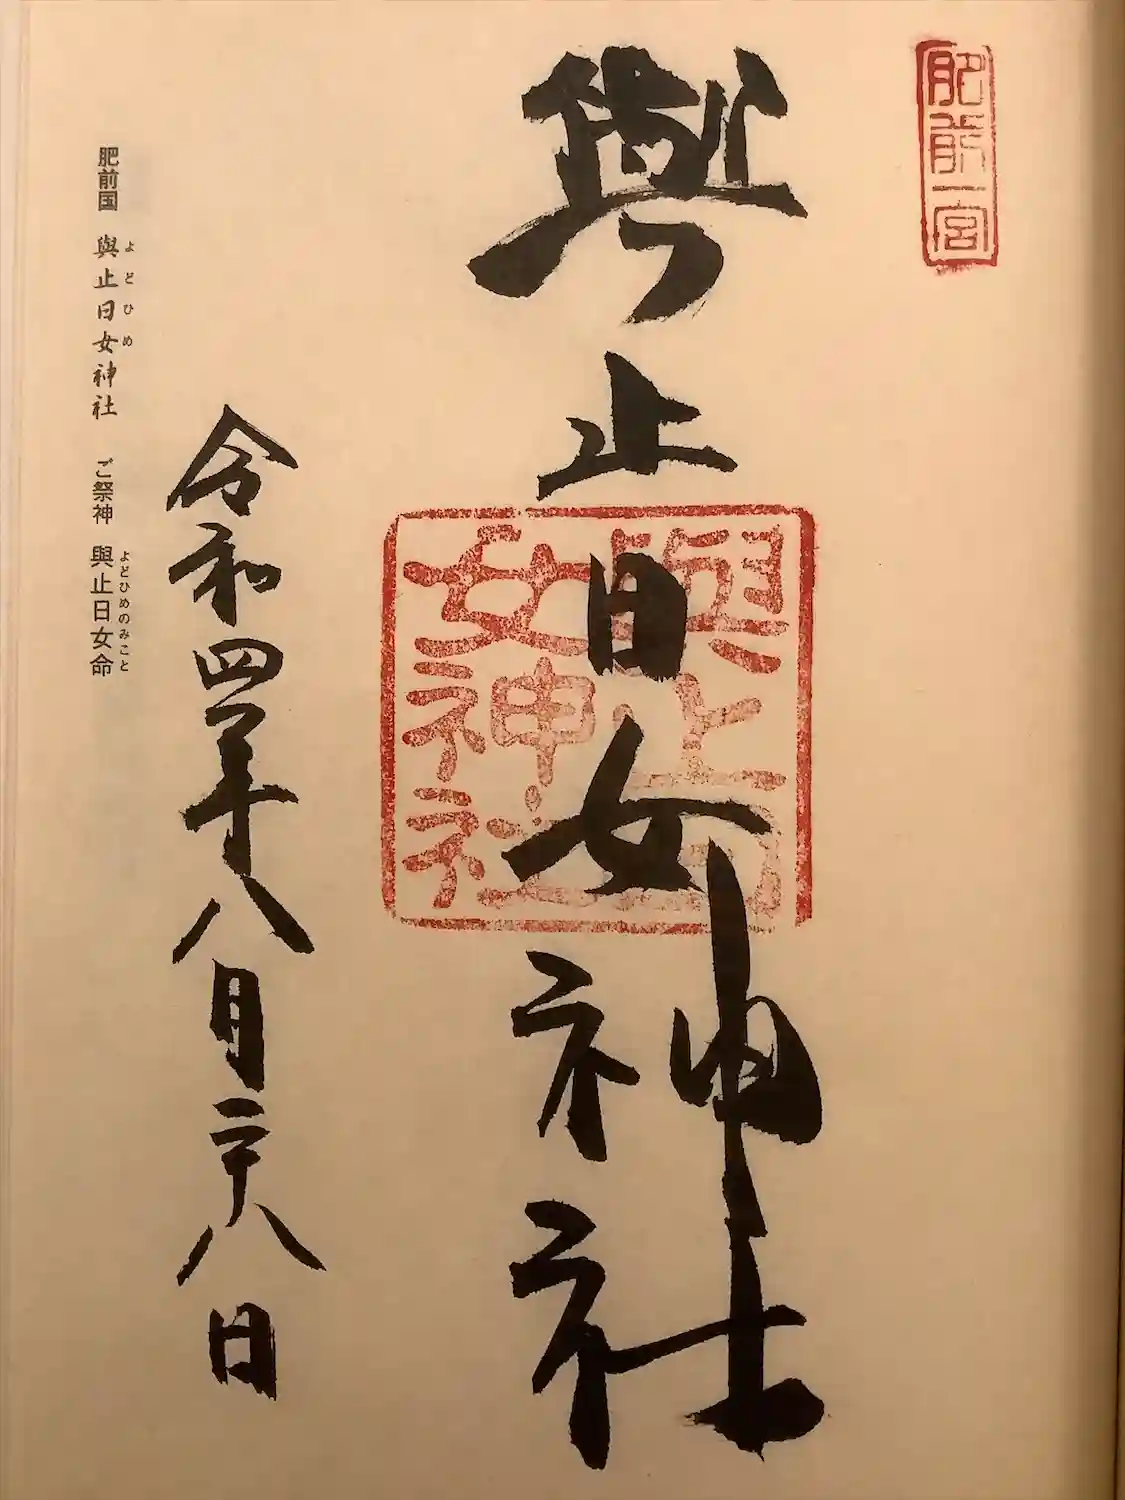 肥前一宮
與止日女神社
與止日女神社
令和四年八月二十八日
肥前国 與止日女神社 ご祭神 與止日女命
よどひめ よどひめのみこと